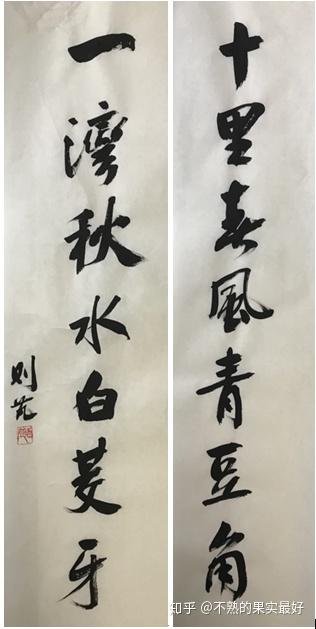 十里春風青豆角
一灣秋水白菱牙
则芃
知乎 @不熟的果实最好